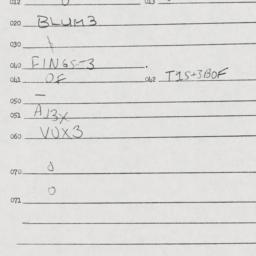 020 BLUM3
030 \
040 FINGS-3
041 OF 042 T1S+3BOF
050 —
051 A13X
060 VUX3
070 0
0
071